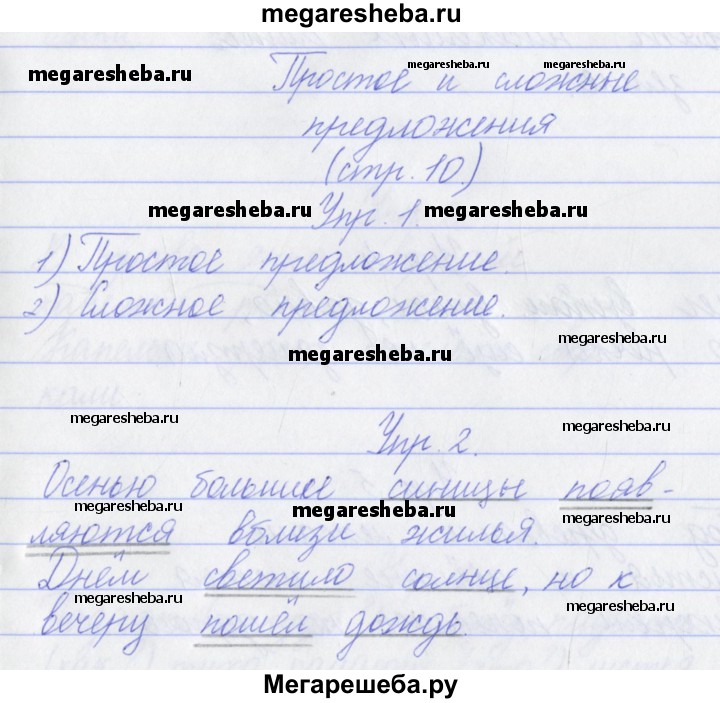 megaresheba.ru
megaresheba.ru
megaresheba.ru megaresheba.ru
Простое и сложные
предложения
megaresheba.ru
(стр. 10)
megaresheba.ru Упр. 1. megaresheba.ru
1) Простое предложение.
2) Сложное предложение.
megaresheba.ru
megaresheba.ru
megaresheba.ru
Упр. 2.
megaresheba.ru
Осенью большие синицы появ-
megaresheba.ru
ляются вблизи жилья.
megaresheba.ru
Днём светило солнце, но к
megaresheba.ru
megaresheba.ru
вечеру пошёл дождь.
Мегарешеба.ру